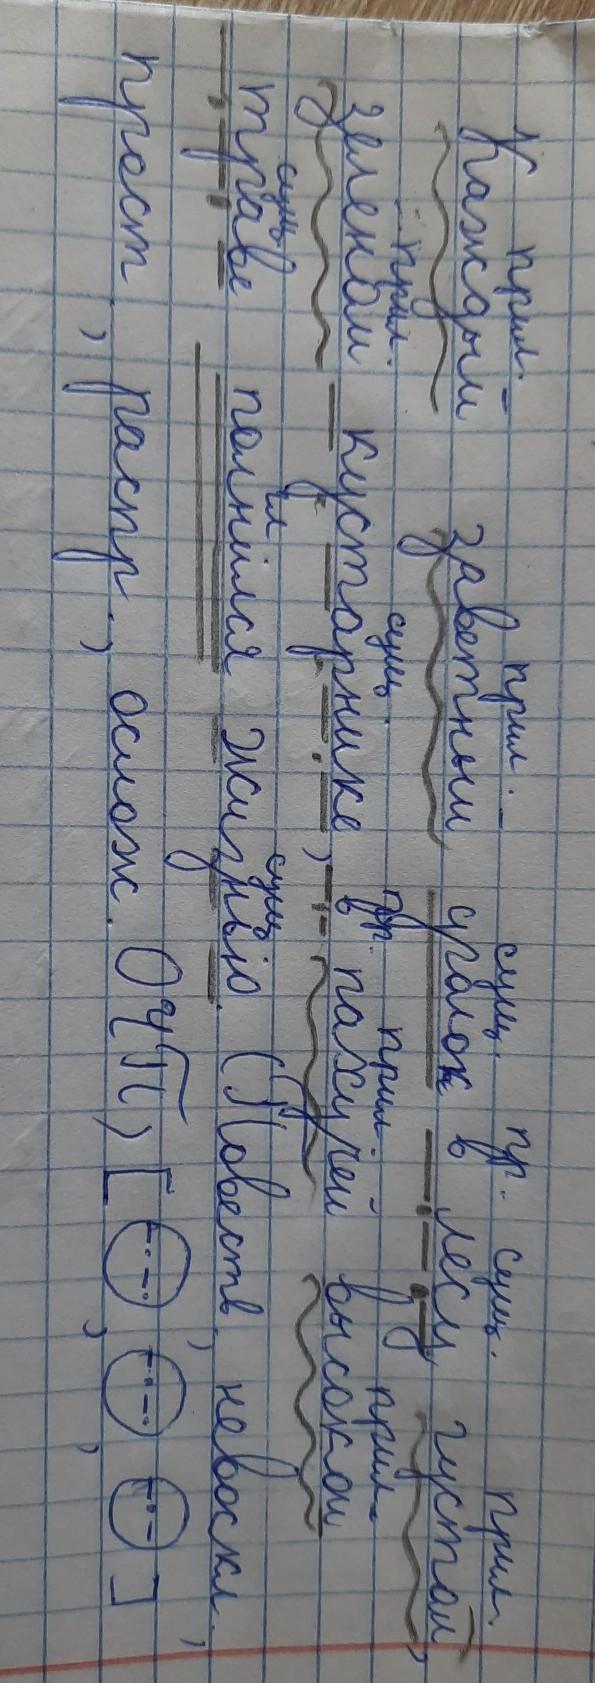 прил. прил. сущ. пр. сущ. прил.
Каждый заветный уголок в лесу, густом,
прил. сущ. пр. прил. прил.
зеленом кустарнике, в пахучей высокой
сущ. гл сущ
траве полнился жизнью. (Повеств., невоскл.,
прост., распр., ослож. ОЧП) [ , , ]